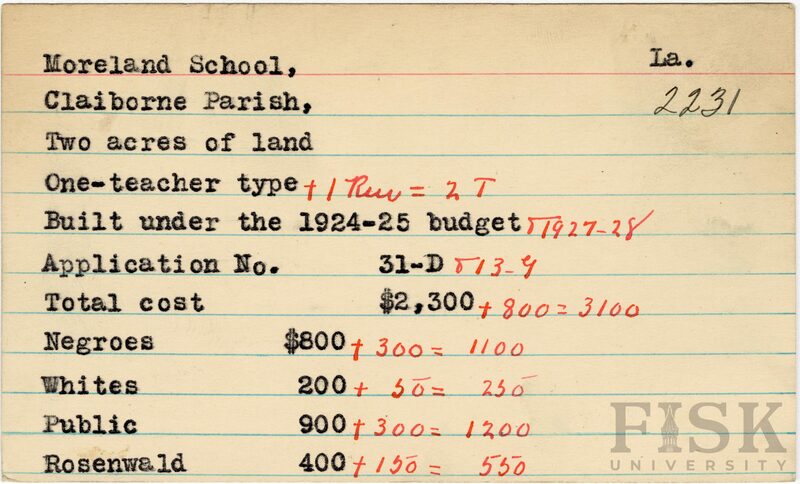 Moreland School, La.
Claiborne Parish, 2231
Two acres of land
One-teacher type + 1 Rm = 2 T
Built under the 1924-25 budget 1927-28
Application No. 31-D 13-
Total cost $2,300 + 800 = 3100
Negroes $800 + 300 = 1100
Whites 200 + 50 = 250
Public 900 + 300 = 1200
Rosenwald 400 + 150 = 550
FISK
UNIVERSITY